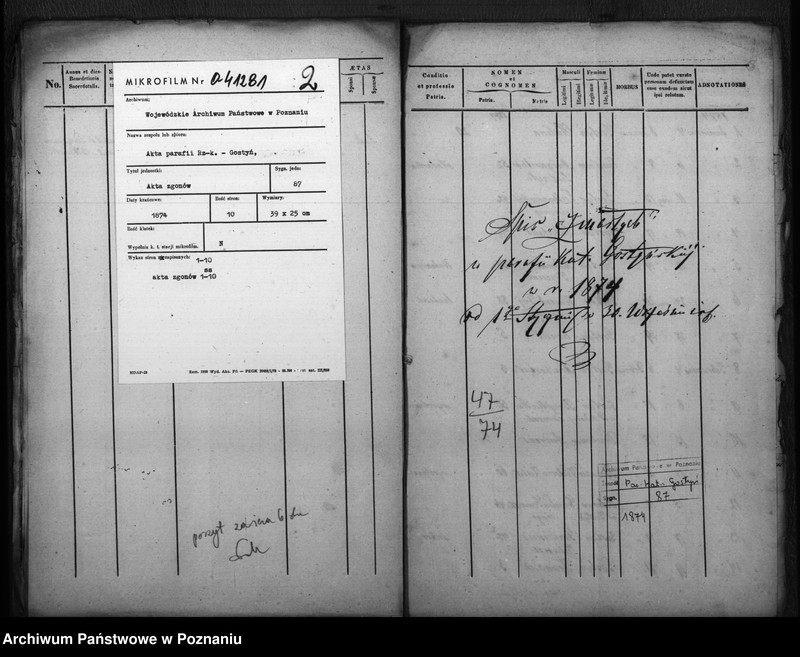 No.
Annus et dies
Benedictionis
Sacerdotalis.
MIKROFILM Nr 041281 2
Archiwum:
Wojewódzkie Archiwum Państwowe w Poznaniu
Nazwa zespołu lub zbioru:
Akta parafii Rz-k. - Gostyń,
Tytuł jednostki:
Sygn. jedn:
Akta zgonów
87
Daty krańcowe:
Ilość stron:
Wymiary:
1874
10
39 x 25 cm
Ilość klatek:
Wypełnia k. t. stacji mikrofilm.
N
Wykaz stron zapisanych: 1-10
ss
akta zgonów 1-10
ÆTAS
Sponsi
Sponsæ
poszyt zawiera 6 kart
Conditio
et professio
Patris.
NOMEN
et
COGNOMEN
Patris.
Matris
Masculi
Feminæ
Legitimi
Illegitimi
Legitimæ
Illegitimæ
MORBUS
Unde patet curato
personam defunctam
esse eandem sicut
ipsi relatum.
ADNOTATIONES
Spis „Zmarłych”
w parafii kat. Gostyńskiéj
w r. 1874
od 1go Stycznia do 30. Września inf.
47
74
Archiwum Państwowe w Poznaniu
Par. kat. Gostyń
87
1874
Archiwum Państwowe w Poznaniu